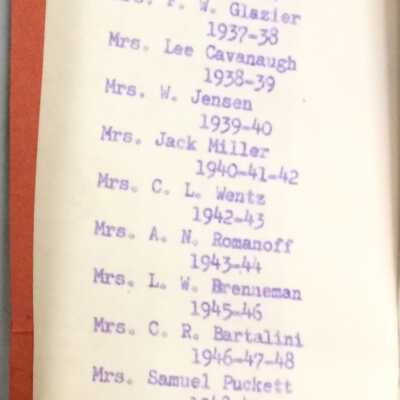 Mrs. F. W. Glazier
1937-38
Mrs. Lee Cavanaugh
1938-39
Mrs. W. Jensen
1939-40
Mrs. Jack Miller
1940-41-42
Mrs. C. L. Wentz
1942-43
Mrs. A. N. Romanoff
1943-44
Mrs. L. W. Brenneman
1945-46
Mrs. C. R. Bartalini
1946-47-48
Mrs. Samuel Puckett